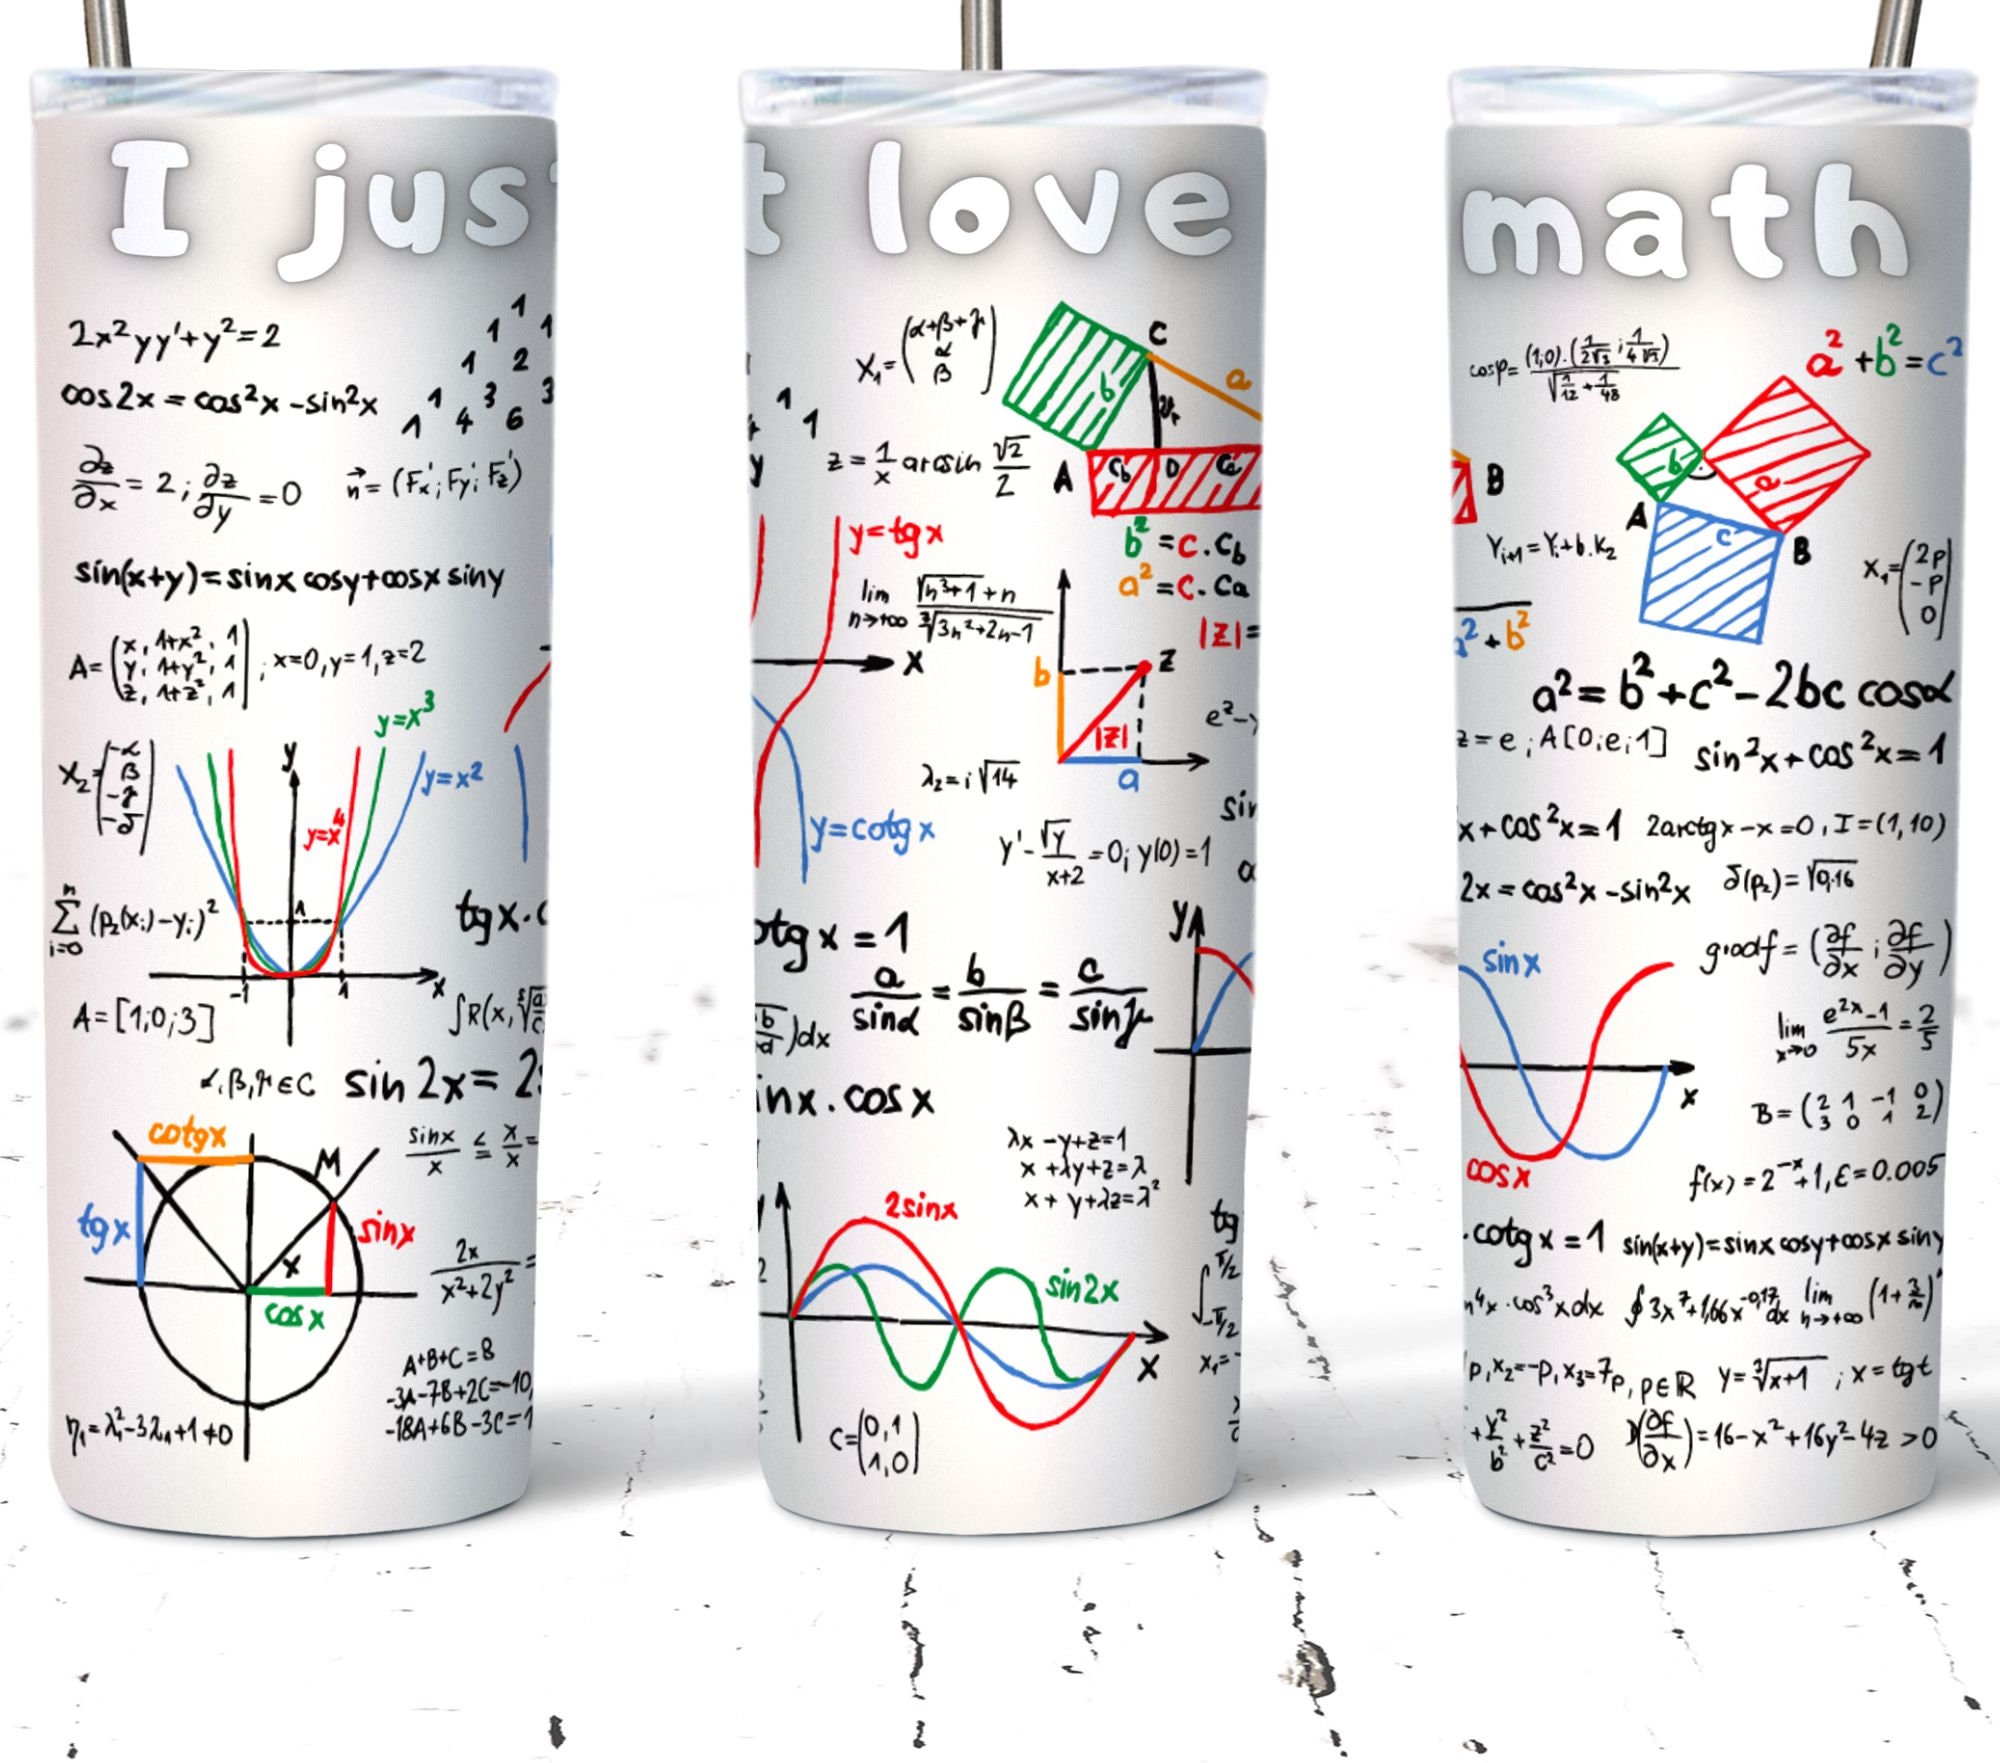 I jus
2x²yy'+y²=2
cos2x = cos²x -sin²x
1
1 1
1 2
1 3 3
1 4 6
∂z/∂x = 2; ∂z/∂y =0
n⃗ = (F'x; F'y; F'z)
sin(x+y)=sinx cosy+cosx siny
A= (x, 1+x², 1
y, 1+y², 1
z, 1+z², 1) ; x=0, y=1, z=2
y=x³
X₂= (-α
β
-γ
-δ)
y
y=x⁴
y=x²
1
-1
1
x
n
∑ (p₂(xᵢ)-yᵢ)²
i=0
tgx.
A=[1;0;3]
∫R(x,
α,β,γ∈C
sin 2x= 2
cotgx
M
sinx/x ≤ x/x =
tgx
x
sinx
cosx
2x/(x²+2y²) =
A+B+C=8
-3A-7B+2C=-10,
-18A+6B-3C=1
η₁=λ₁²-3λ₁+1≠0
t love
X₁= (α+β+γ
α
β)
C
b
a
1
1
z = 1/x arcsin √2/2
A
Cb
D
Ca
y
y=tgx
b²=c.Cb
a²=c.Ca
lim n→+∞ (√(n³+1)+n)/(∛(3n²+2n-1))
|Z|=
x
b
z
|Z|
a
e²-
λ₂=i√14
sin
y=cotgx
y'-√y/(x+2) =0; y(0)=1
otgx =1
y
a/sinα = b/sinβ = c/sinγ
)dx
inx.cosx
λx-y+z=1
x+λy+z=λ
x+y+λz=λ²
y
2sinx
sin2x
2
x
tg
∫ π/2
-π/2
x₁=
C=(0,1
1,0)
math
cosφ= (1;0).(1/2√3; 1/4√3)/√(1/12+1/48)
a²+b²=c²
b
a
A
c
B
B
Yᵢ₊₁=Yᵢ+b.K₂
X₁=(2p
-p
0)
² + b²
a²= b²+c²-2bc cosα
z=e; A[0;e;1]
sin²x+cos²x=1
x+cos²x=1
2arctgx-x=0, I=(1,10)
2x=cos²x-sin²x
δ(p₂)=√0,16
sinx
gradf=(∂f/∂x; ∂f/∂y)
lim x→0 (e²ˣ-1)/5x = 2/5
x
B=(2 1 -1 0
3 0 1 2)
cosx
f(x)=2⁻ˣ+1, ε=0.005
.cotgx=1
sin(x+y)=sinx cosy+cosx siny
⁴x.cos³xdx
∮3x⁷+1,66x⁻⁰·¹⁷dx
lim n→+∞ (1+3/n)
p, x₂=-p, x₃=7p, p∈R
y=∛(x+1) ; x=tgt
+y²/b²+z²/c²=0
(∂f/∂x)=16-x²+16y²-4z>0